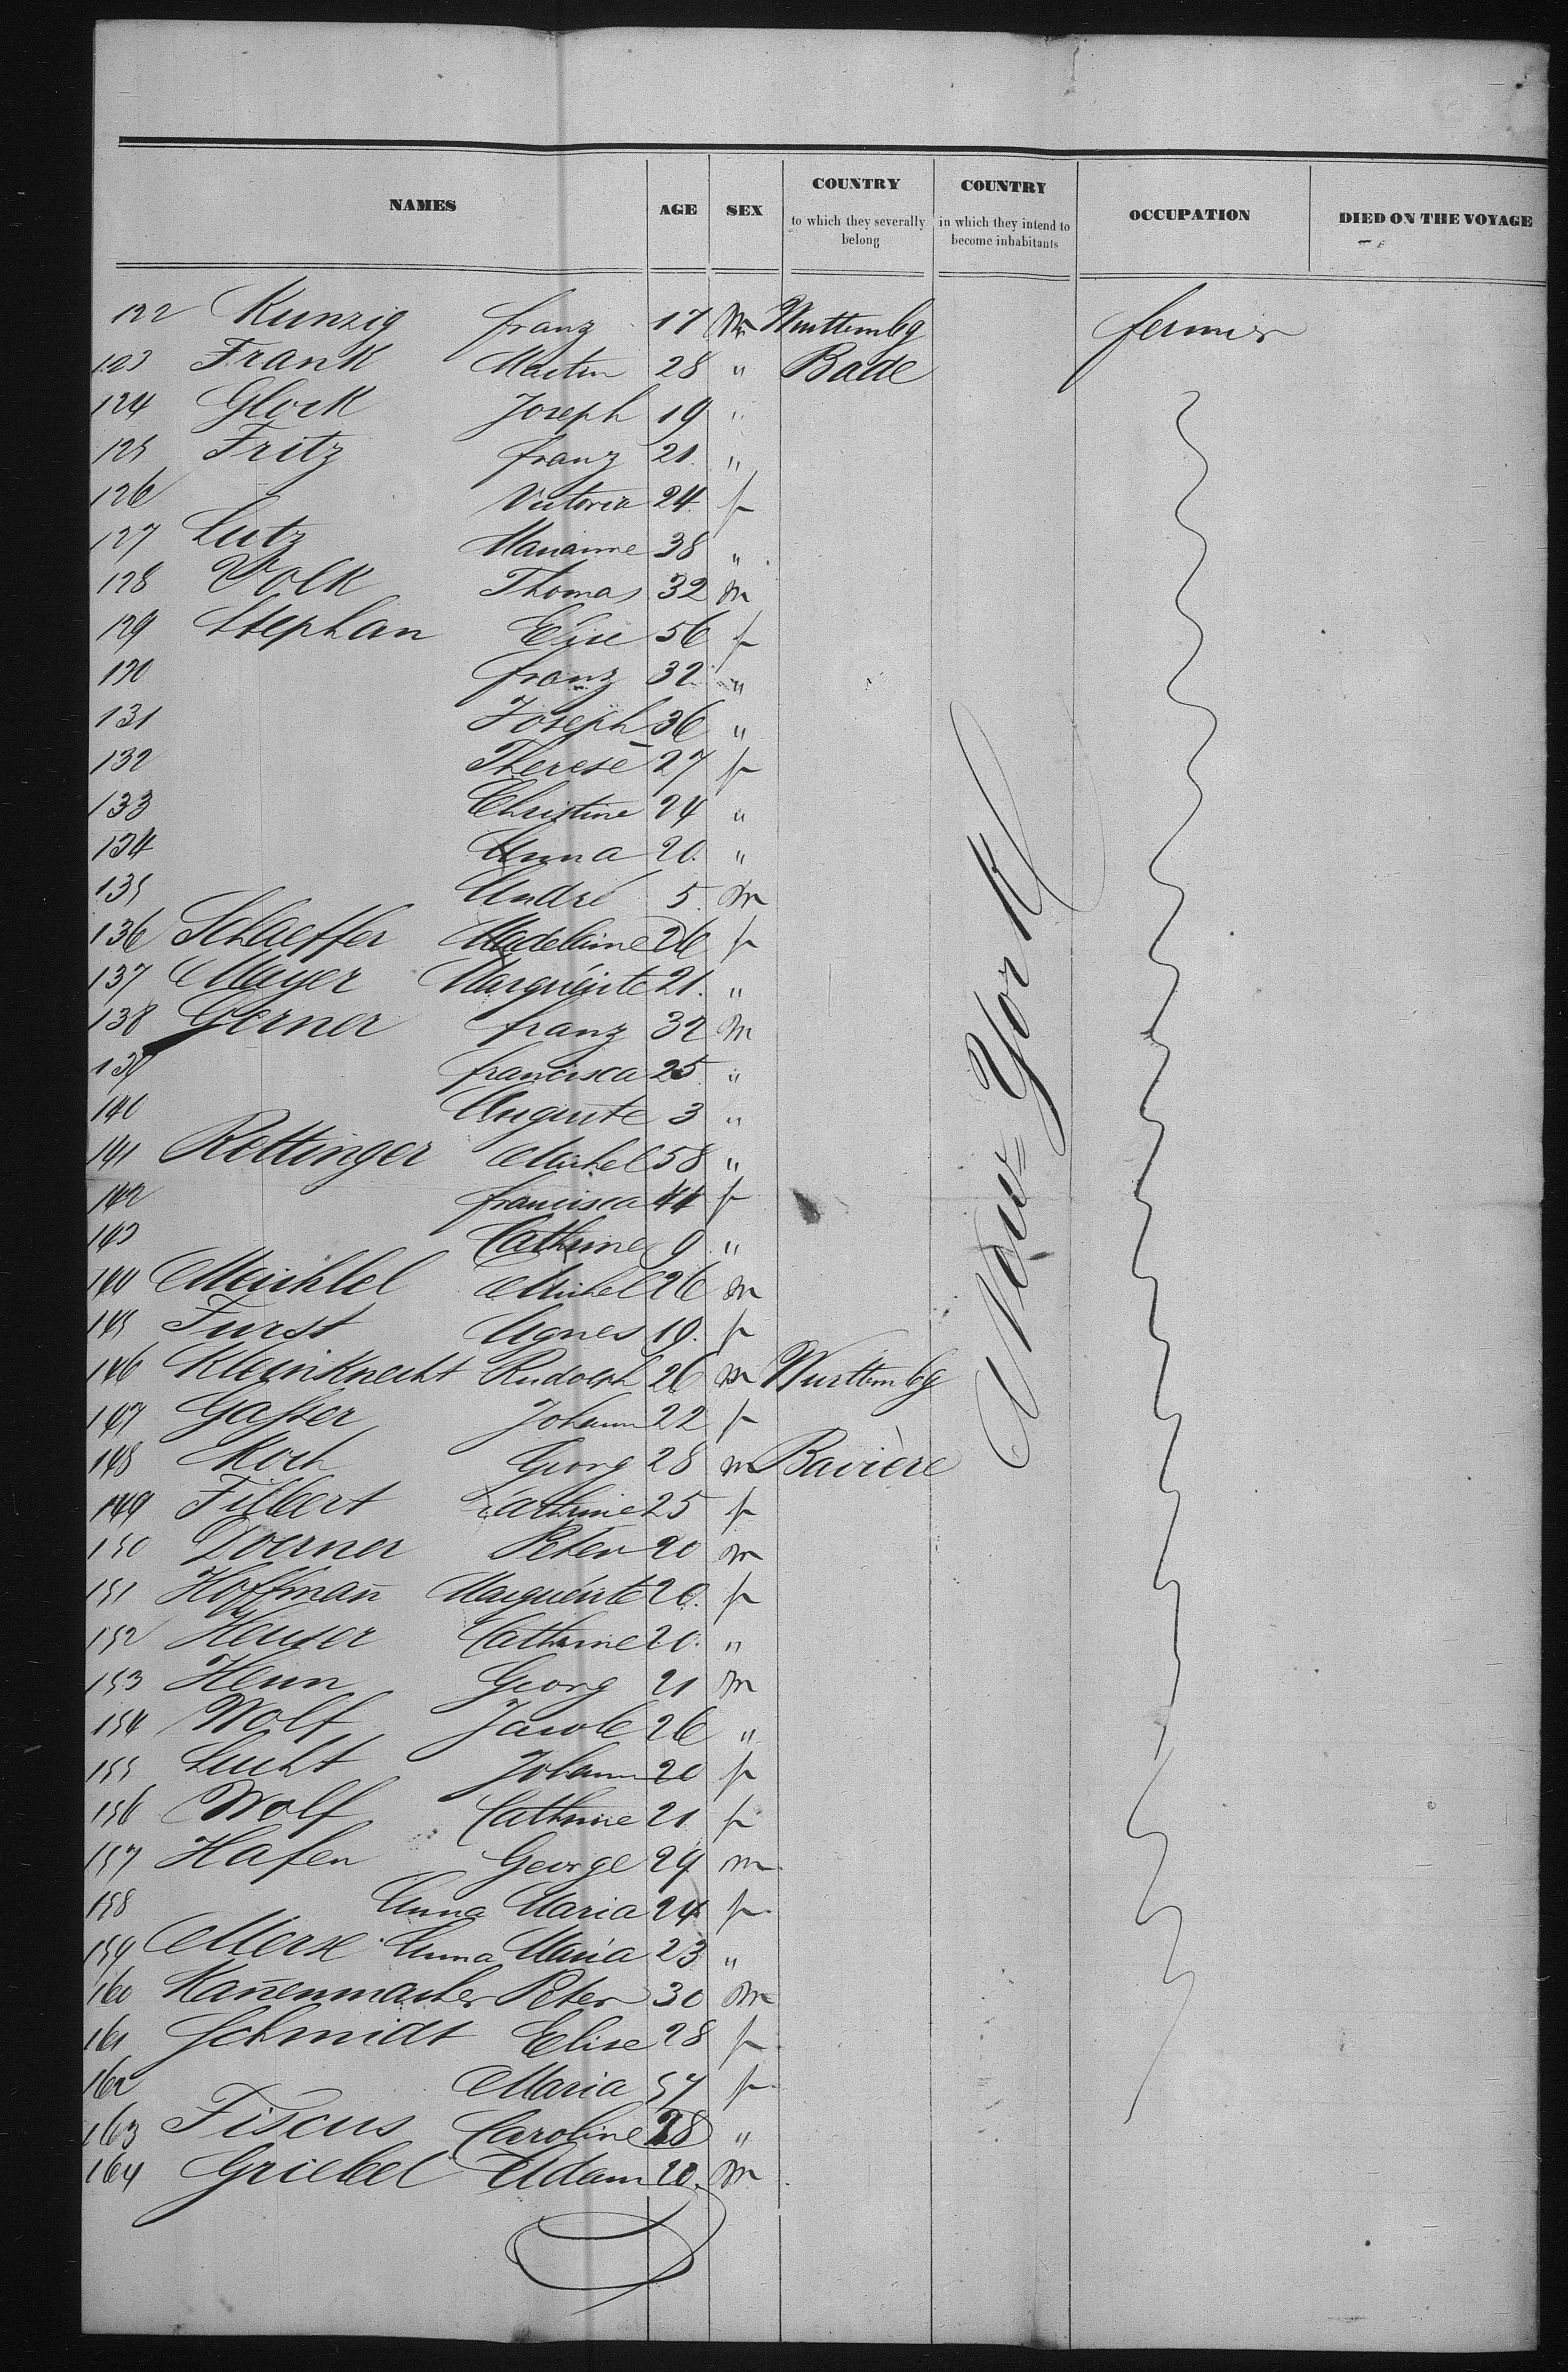 NAMES AGE SEX COUNTRY to which they severally belong COUNTRY in which they intend to become inhabitants OCCUPATION DIED ON THE VOYAGE
122 Kunzig franz 17 m Wurttembg fermier
123 Frank Martin 28 " Bade
124 Glock Joseph 19 "
125 Fritz franz 21 "
126 Victoria 24 f
127 Lutz Marianne 38 "
128 Volk Thomas 32 m
129 Stephan 56 f
130 franz 32 "
131 Joseph 36 "
132 Therese 27 f
133 Christine 24 "
134 Anna 20 "
135 André 5 m
136 Schaeffer Madelaine 26 f
137 Mayer Marguérite 21 "
138 Gerner franz 32 m
139 francisca 25 "
140 Auguste 3 "
141 Rottinger Michel 58 "
142 francisca 44 f
143 Cathrine 9 "
144 Michel 26 m
145 Furst Agnes 19 f
146 Kleinknecht Rudolph 26 m Wurttembg
147 Gasser Johann 22 f
148 Koch Georg 28 m Bavière
149 Filbert Cathrine 25 f
150 Doerner Peter 20 m
151 Hoffmañ Marguérite 20 f
152 Heuser Cathrine 20 "
153 Henn Georg 21 m
154 Wolf Jacob 26 "
155 Lucht Johann 20 f
156 Wolf Cathrine 21 f
157 Hafen George 29 m
158 Anna Maria 24 f
159 Anna Maria 23 "
160 Kañenmacher Peter 30 m
161 Schmidt Elise 28 f
162 Maria 57 f
163 Fiscus Caroline 28 "
164 Griebel Adam 20 m
New-York